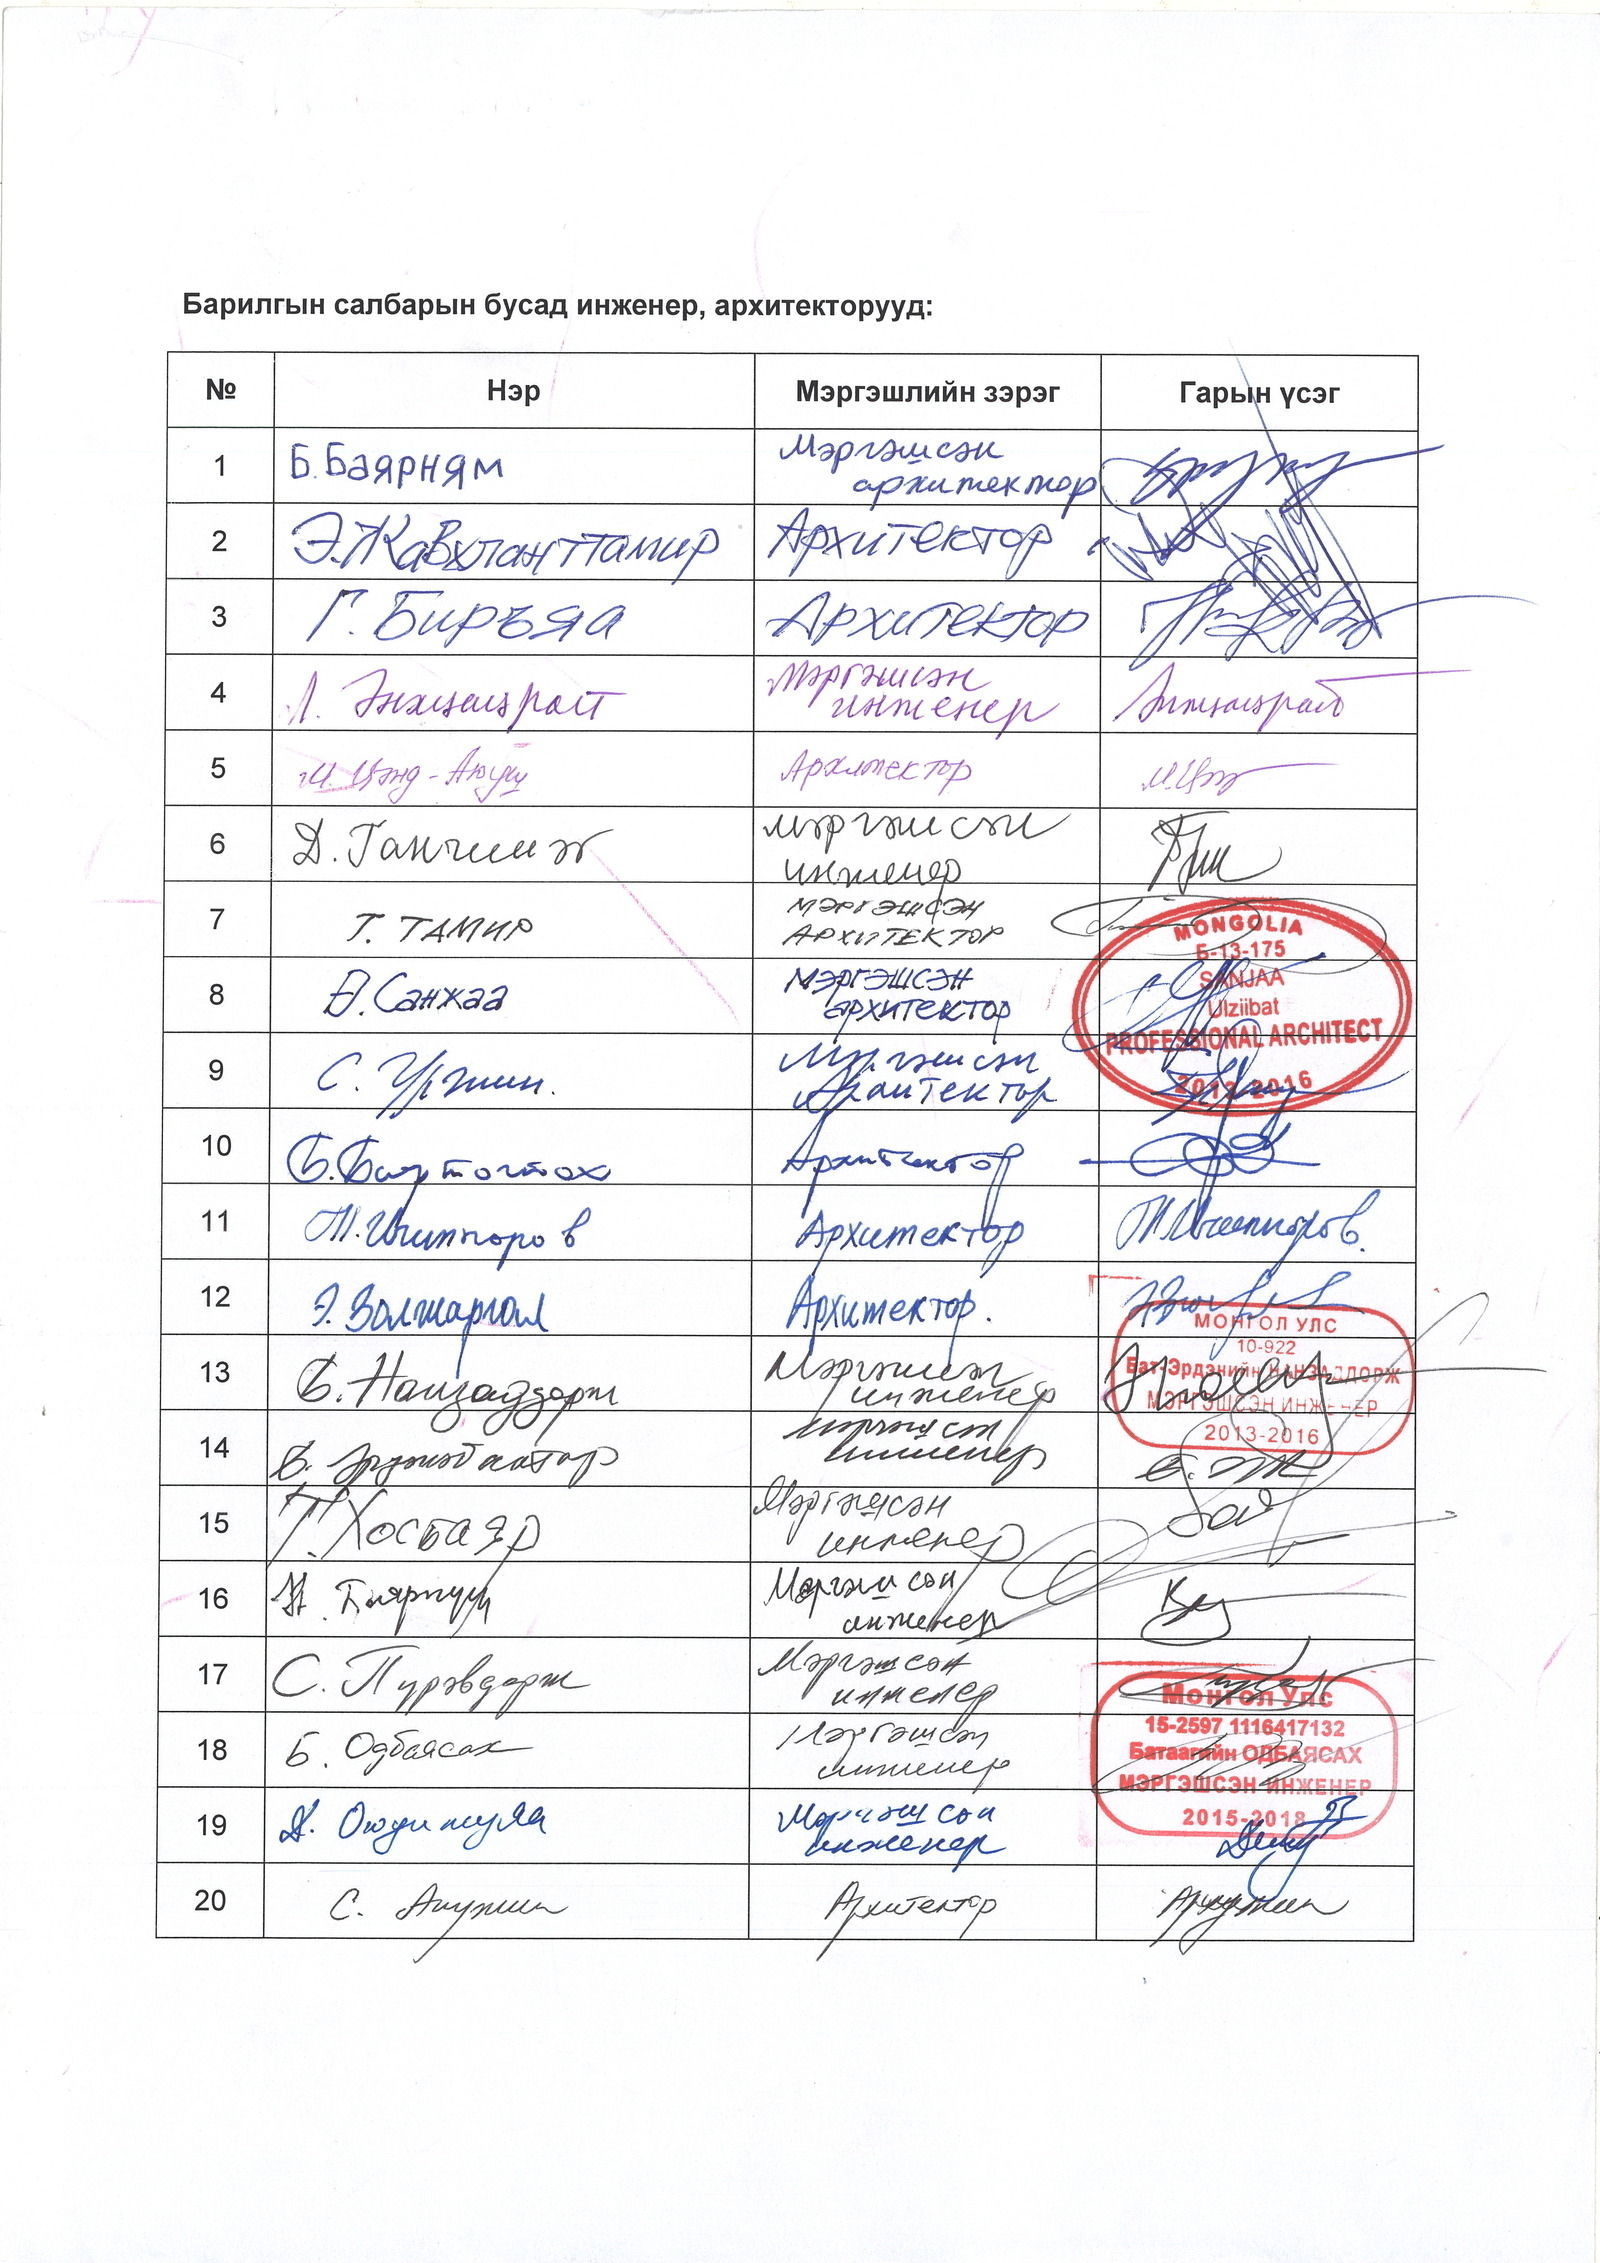 Барилгын салбарын бусад инженер, архитекторууд:
№ Нэр Мэргэшлийн зэрэг Гарын үсэг
1 Б.Баярням Мэргэшсэн
архитектор
2 Э.Жавхлантамир Архитектор
3 Г. Биръяа Архитектор
4 Л. Энхцацрал Мэргэшсэн
инженер
5 М. Цэнд-Аюуш Архитектор М.Цэ
6 Д. Ганчимэг мэргэшсэн
инженер
7 Т. ТАМИР МЭРГЭШСЭН
АРХИТЕКТОР
MONGOLIA
Б-13-175
8 Ө.Санжаа Мэргэшсэн
архитектор
SANJAA
Ulziibat
PROFESSIONAL ARCHITECT
2013-2016
9 С. Уржин. Мэргэшсэн
Архитектор
10 Б. Архитектор
11 Т. Ишцоров Архитектор
12 Э. Золжаргал Архитектор.
МОНГОЛ УЛС
10-922
Бат-Эрдэнийн НАНЗАДДОРЖ
МЭРГЭШСЭН ИНЖЕНЕР
2013-2016
13 Б. Нанзаддорж Мэргэшсэн
инженер
14 Б. мэргэшсэн
инженер
15 Т. Хосбаяр Мэргэшсэн
инженер
16 Н. Мэргэшсэн
инженер
17 С. Пүрэвдорж Мэргэшсэн
инженер
МОНГОЛ УЛС
15-2597 1116417132
Батаагийн ОДБАЯСАХ
МЭРГЭШСЭН ИНЖЕНЕР
2015-2018
18 Б. Одбаясах Мэргэшсэн
инженер
19 Д. Мэргэшсэн
инженер
20 С. Архитектор